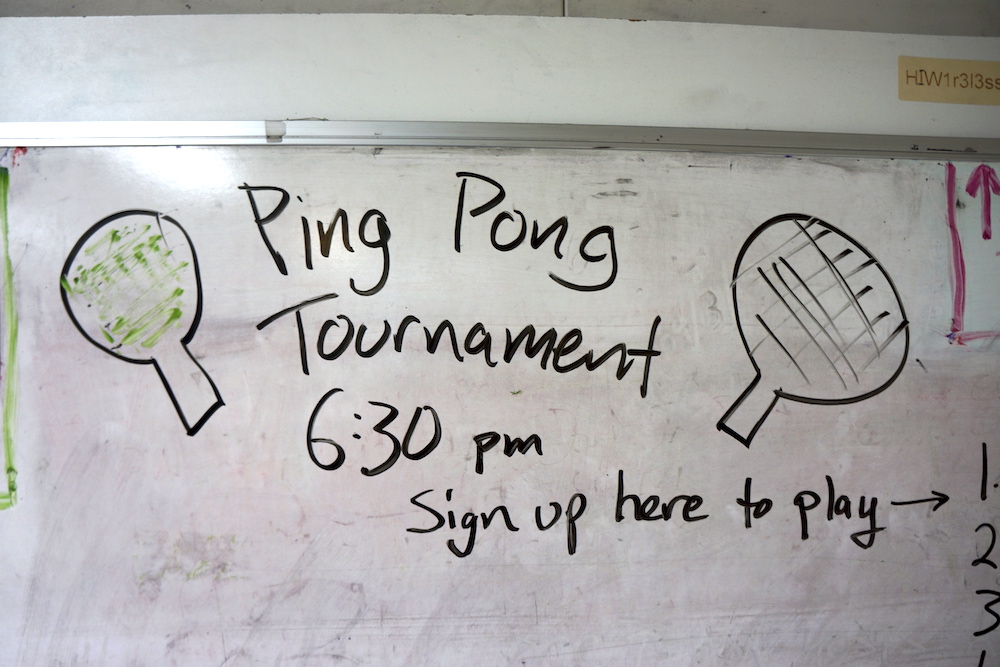 HIW1r3l3ss
Ping Pong
Tournament
6:30 pm
Sign up here to play →
1.
2
3